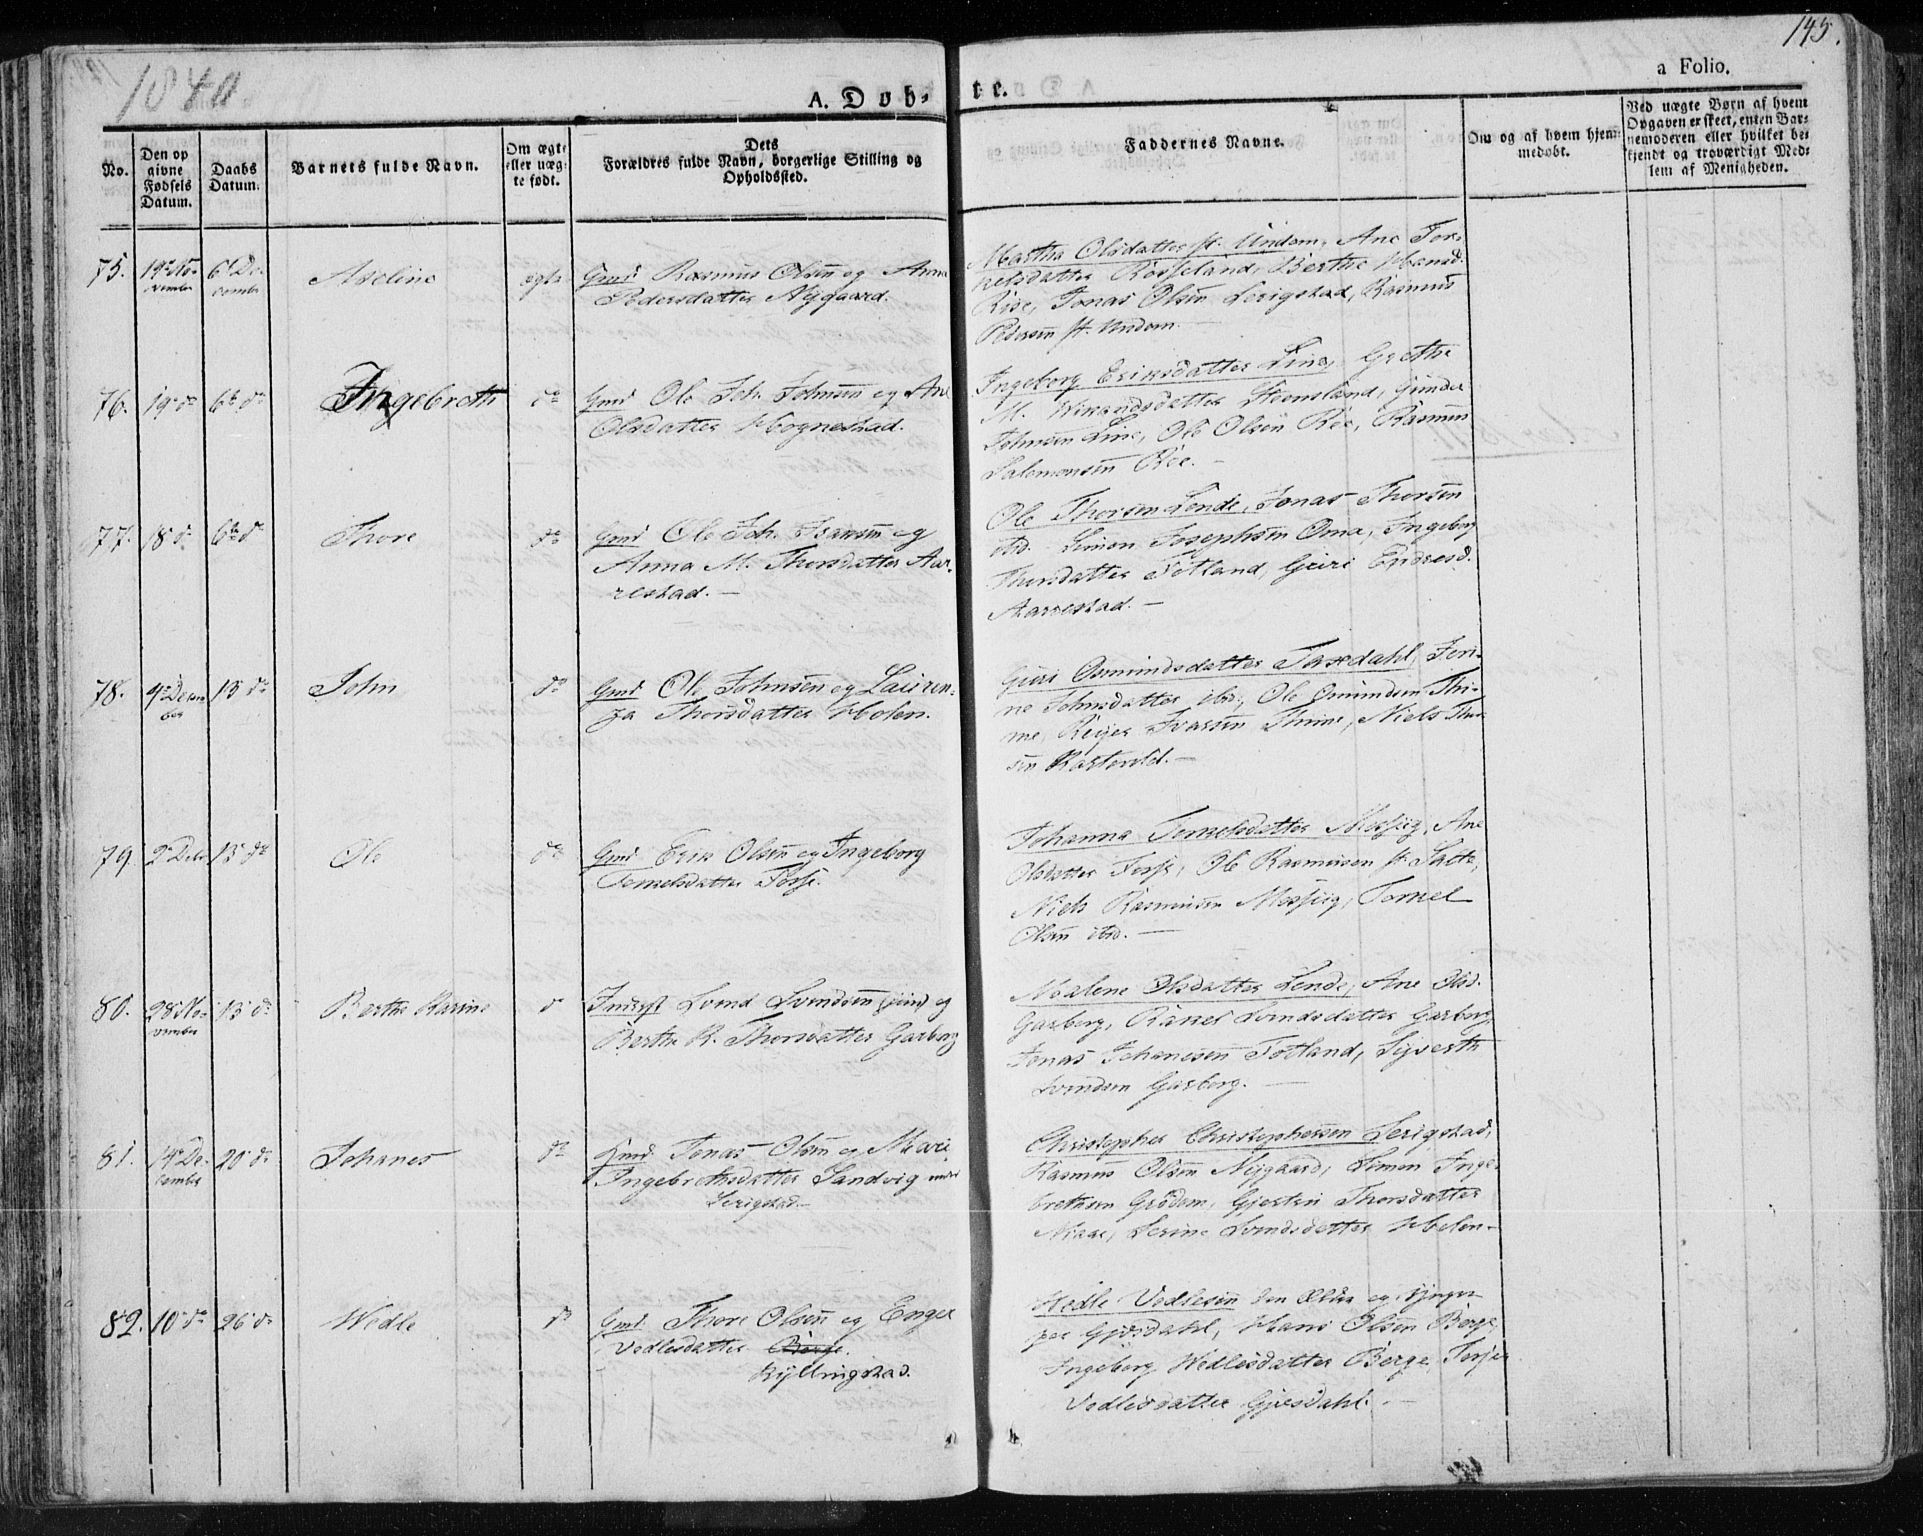 1840
145.
A. Dob-
te.
a Folio.
No.
Den op
givne
Fødsels
Datum.
Daabs
Datum.
Barnets fulde Navn.
Om ægte
eller uæg-
te født.
Dets
Forældres fulde Navn, borgerlige Stilling og
Opholdssted.
Faddernes Navne.
Om og af hvem hjem-
medøbt.
Ved uægte Børn af hvem
Opgaven er skeet, enten Bar-
nemoderen eller hvilket be-
kjendt og troværdigt Med-
lem af Menigheden.
75.
19 No-
vember
6 De-
cember
Aseline
ægte
Gmd Rasmus Olsen og Anna
Pedersdatter Nygaard.
Martha Olsdatter st. Undem, Ane Tor-
kelsdatter Rosseland, Berthe Hansd.
Rise, Jonas Olsen Serigstad, Rasmus
Pedersen st. Undem.
76.
19 do
6te do
Ingebreth
do
Gmd Ole Joh. Johnsen og Ane
Olsdatter Hognestad.
Ingeborg Eriksdatter Line, Grethe
M. Wikandsdatter Steensland, Gunder
Johnsen Line, Ole Olsen Røe, Rasmus
Salomonsen Røe.
77.
18 do
6te do
Thore
do
Gmd Ole Joh. Isaksen og
Anna M. Thorsdatter Aar-
restad.
Ole Thorsen Lende, Jonas Thorsen
ibd. Simon Josephsen Oma, Ingeborg
Thorsdatter Fotland, Guri Endresd.
Aarrestad.
78.
9 Decem-
ber
13 do
John
do
Gmd Ole Johnsen og Lauren-
za Thorsdatter Holen.
Guri Osmundsdatter Taxdahl, Jen-
ne Johnsdatter ibd., Ole Osmundsen Thi-
me, Reier Ivarsen Thime, Niels Thor-
sen
79.
2 Decb
13 do
Ole
do
Gmd Erik Olsen og Ingeborg
Tornelsdatter Fosse.
Johanna Tornelsdatter Mossig, Ane
Olsdatter Fosse, Ole Rasmusen st. Salte,
Niels Rasmusen Mossig, Tornel
Olsen ibd.
80.
28 No-
vember
13 do
Berthe Karine
do
Inderst Svend Svendsen (jun) og
Berthe K. Thorsdatter Garborg
Malene Olsdatter Lende, Ane Olsd.
Garborg, Rakel Svendsdatter Garborg,
Jonas Johanesen Fotland, Sijverth
Svendsen Garborg.
81.
14 De-
cember
20 do
Johanes
do
Gmd Jonas Olsen og Mari
Ingebrethsdatter Sandvig under
Serigstad
Christopher Christophersen Serigstad,
Rasmus Olsen Nygaard, Simon Inge-
brethsen Grødem, Gjertrui Thorsdatter
Njaae, Serine Svendsdatter Holen
82.
10 do
26 do
Wedle
do
Gmd. Thore Olsen og Enger
Vedlesdatter Berge.
Kyllingstad.
Wedle Vedlesen den Ældre og Yngre
paa Gjesdahl, Hans Olsen Berge,
Ingeborg Wedlesdatter Berge, Torjer
Vedlesdatter Gjesdahl.